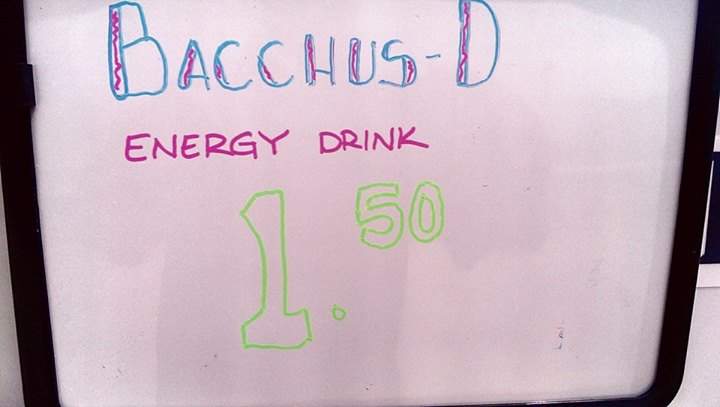 BACCHUS-D
ENERGY DRINK
1.50